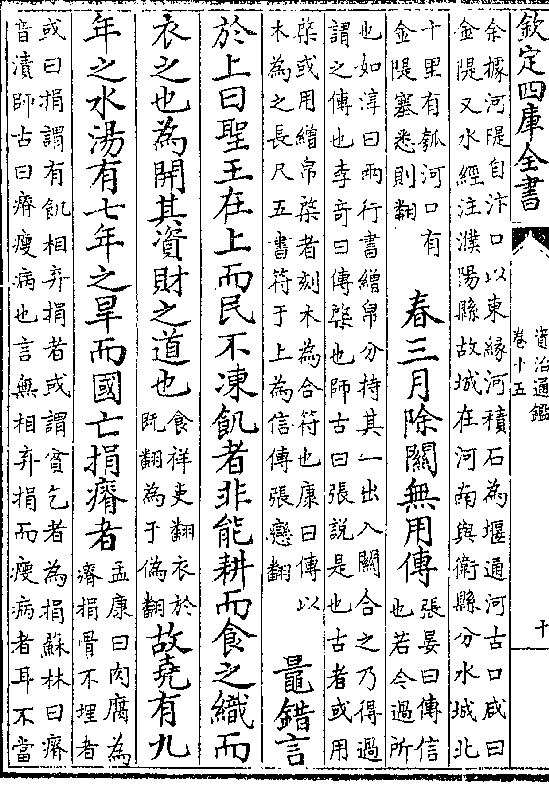 欽定四庫全書
資治通鑑
卷十五
十
余據河隄自汴口以東緣河積石為堰通河古口咸曰
金隄又水經注濮陽縣故城在河南與衛縣分水城北
十里有瓠河口有
金隄塞悉則翻
春三月除關無用傳
張晏曰傳信
也若今過所
也如淳曰兩行書繒帛分持其一出入關合之乃得過
謂之傳也李奇曰傳棨也師古曰張說是也古者或用
棨或用繒帛棨者刻木為合符也康曰傳以
木為之長尺五書符于上為信傳張戀翻
鼂錯言
於上曰聖王在上而民不凍飢者非能耕而食之織而
衣之也為開其資財之道也
食祥吏翻衣於
既翻為于偽翻
故堯有九
年之水湯有七年之旱而國亡捐瘠者
孟康曰肉腐為
瘠捐骨不埋者
或曰捐謂有飢相弃捐者或謂貧乞者為捐蘇林曰瘠
音漬師古曰瘠瘦病也言無相弃捐而瘦病者耳不當